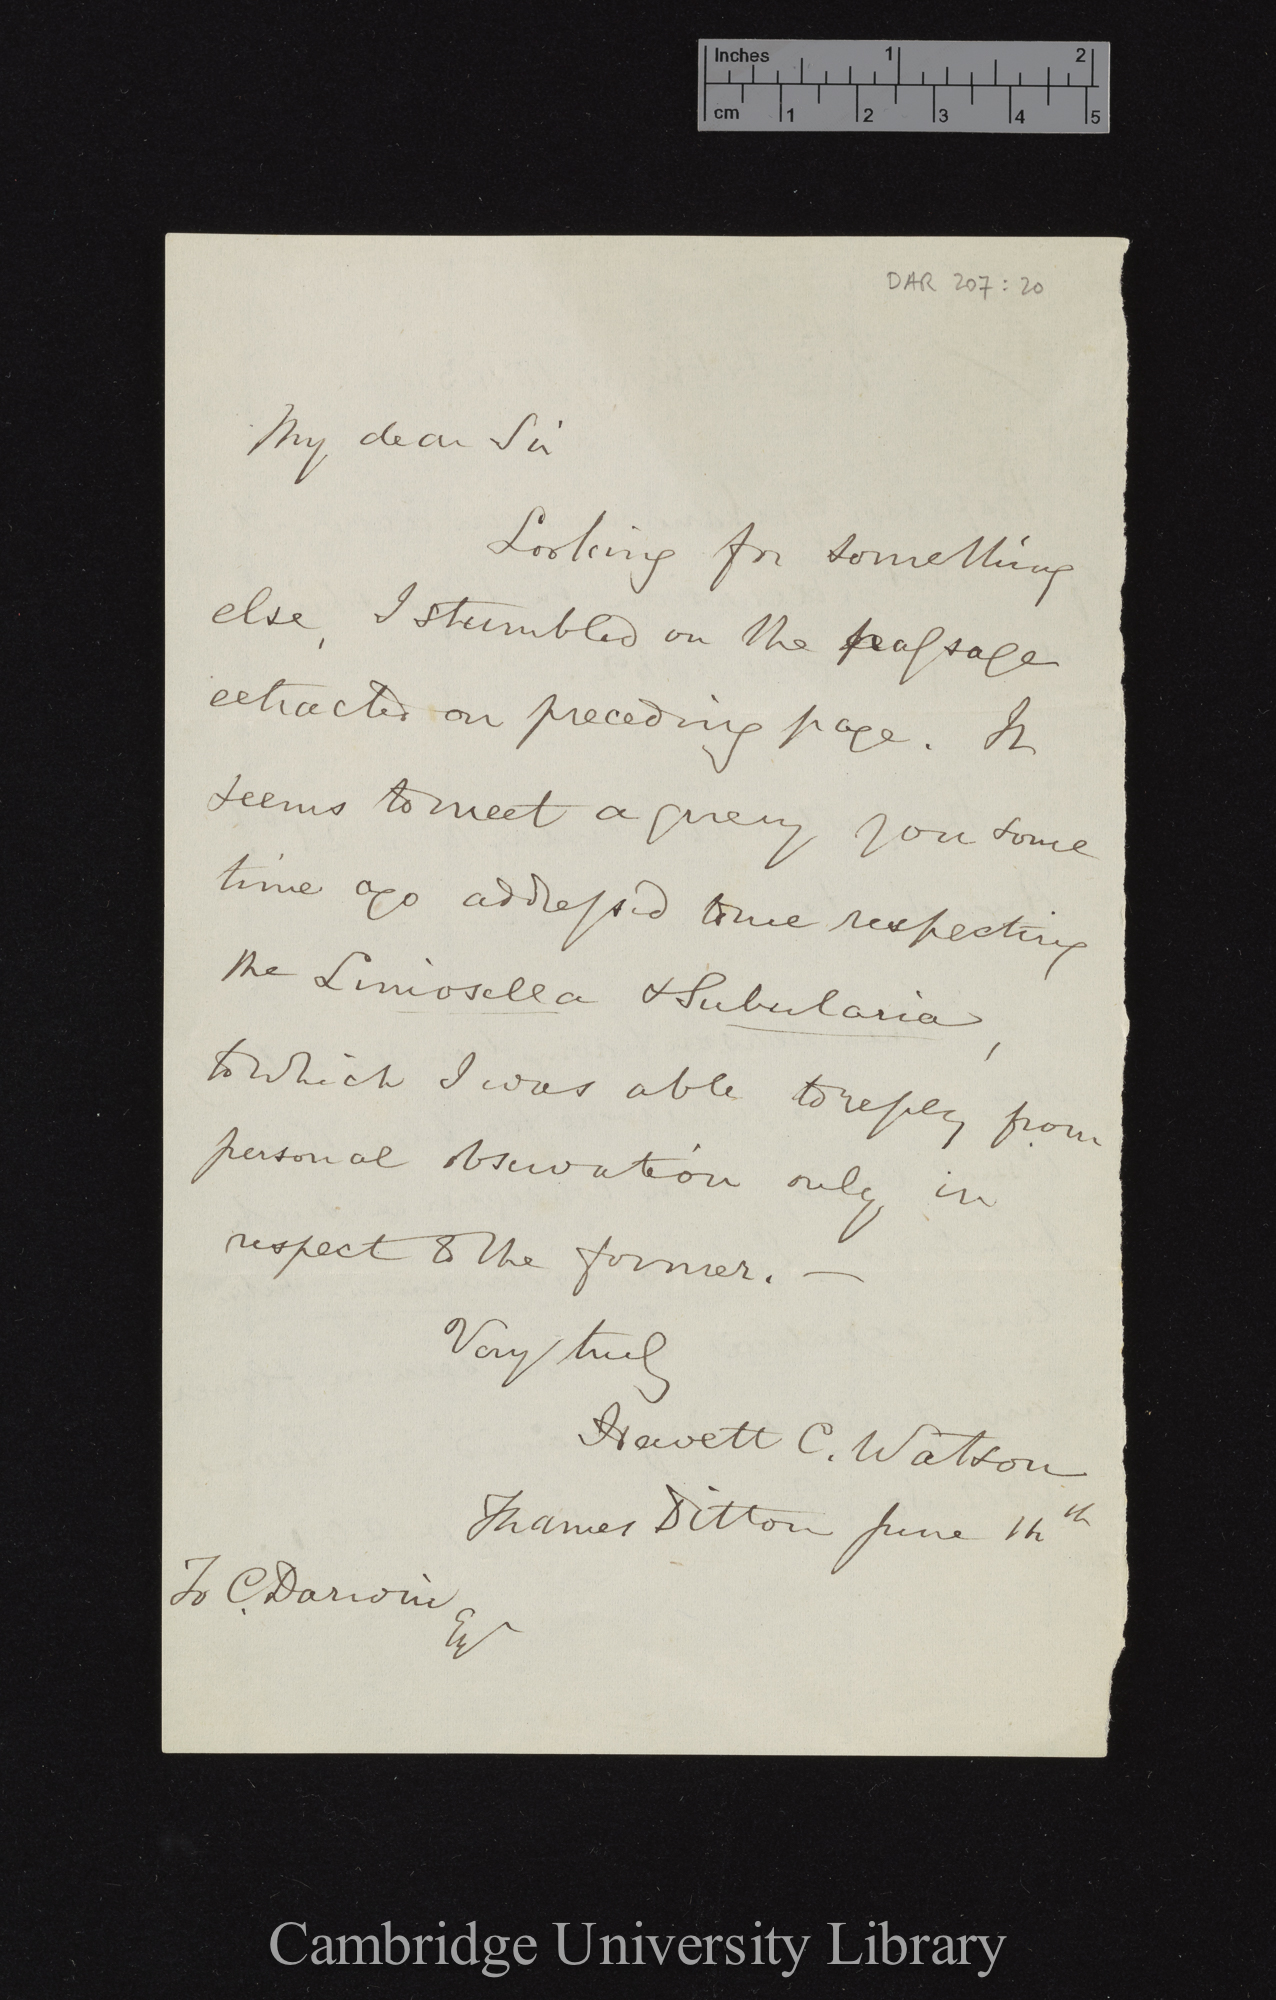 Inches 1 2
cm 1 2 3 4 5
DAR 207:20
My dear Sir
Looking for something
else, I stumbled on the passage
extracted on preceding page. It
seems to meet a query you some
time ago address'd to me respecting
the Limosella & Subularia,
to which I was able to reply from
personal observation only in
respect to the former. —
Very truly
Hewett C. Watson
Thames Ditton June 1h th
To C. Darwin
Esqr
Cambridge University Library